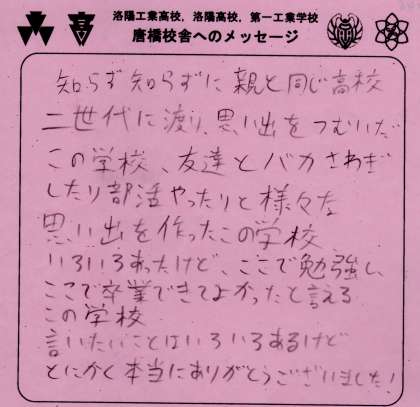 洛陽工業高校，洛陽高校，第一工業学校
唐橋校舎へのメッセージ
知らず知らずに親と同じ高校
二世代に渡り、思い出をつむいだ
この学校、友達とバカさわぎ
したり部活やったりと様々な
思い出を作ったこの学校
いろいろあったけど、ここで勉強し
ここで卒業できてよかったと言える
この学校
言いたいことはいろいろあるけど
とにかく本当にありがとうございました！